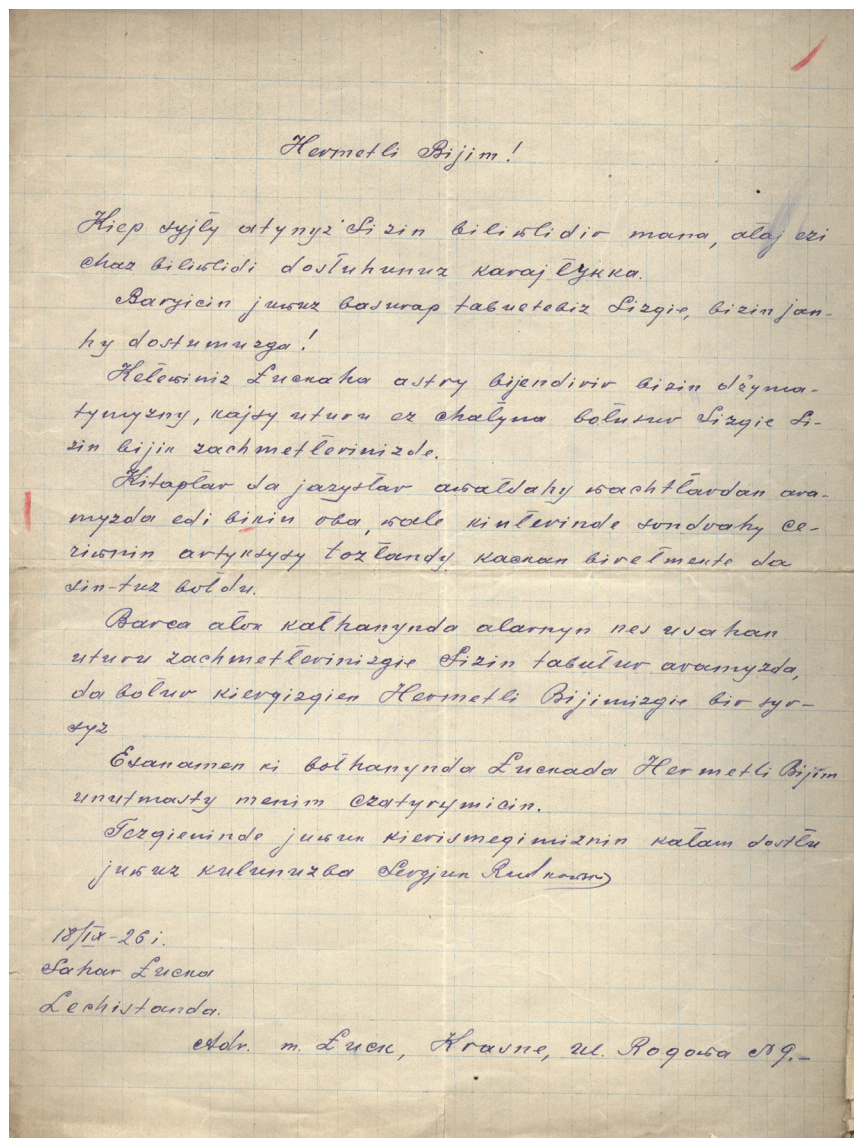 Hermetli Bijim!
Kiep syjły atynyz Sizin biliwlidir mana, ałaj ezi
chaz biliwlidi dostuhunuz karajłykka.
Baryicin juwuz basurap tabuetebiz Sizgie, bizin jan-
hy dostumuzga!
Kełewiniz Łuckaha astry bijendirir bizin dżyma-
tymyzny, kajsy uturu ez chałyna bołusur Sizgie Si-
zin bijik zachmetlerinizde.
Kitapłar da jazysłar awałdahy wachtłardan ara-
myzda edi bikin oba, wale kinlerinde sondrahy ce-
riwnin artyksysy tozłandy kackan biretmekte da
sin-tuz bołdu.
Barca ałok kałhanynda alarnyn nes usahan
uturu zachmetlerinizgie Sizin tabułur aramyzda,
da bołur kiergizgien Hermetli Bijimizgie bir syr-
syz
Esanamen ki bołhanynda Łuckada Hermetli Bijim
unutmasty menim czatyrymicin.
Tezgieninde juwuk kierismegimiznin kałam dostłu
juwuz kulunuzba Sergjusz Rudkowski
18/IX-26 i.
Sahar Łucka
Lechistanda.
Adr. m. Łuck, Krasne, ul. Rogowa N 9.-